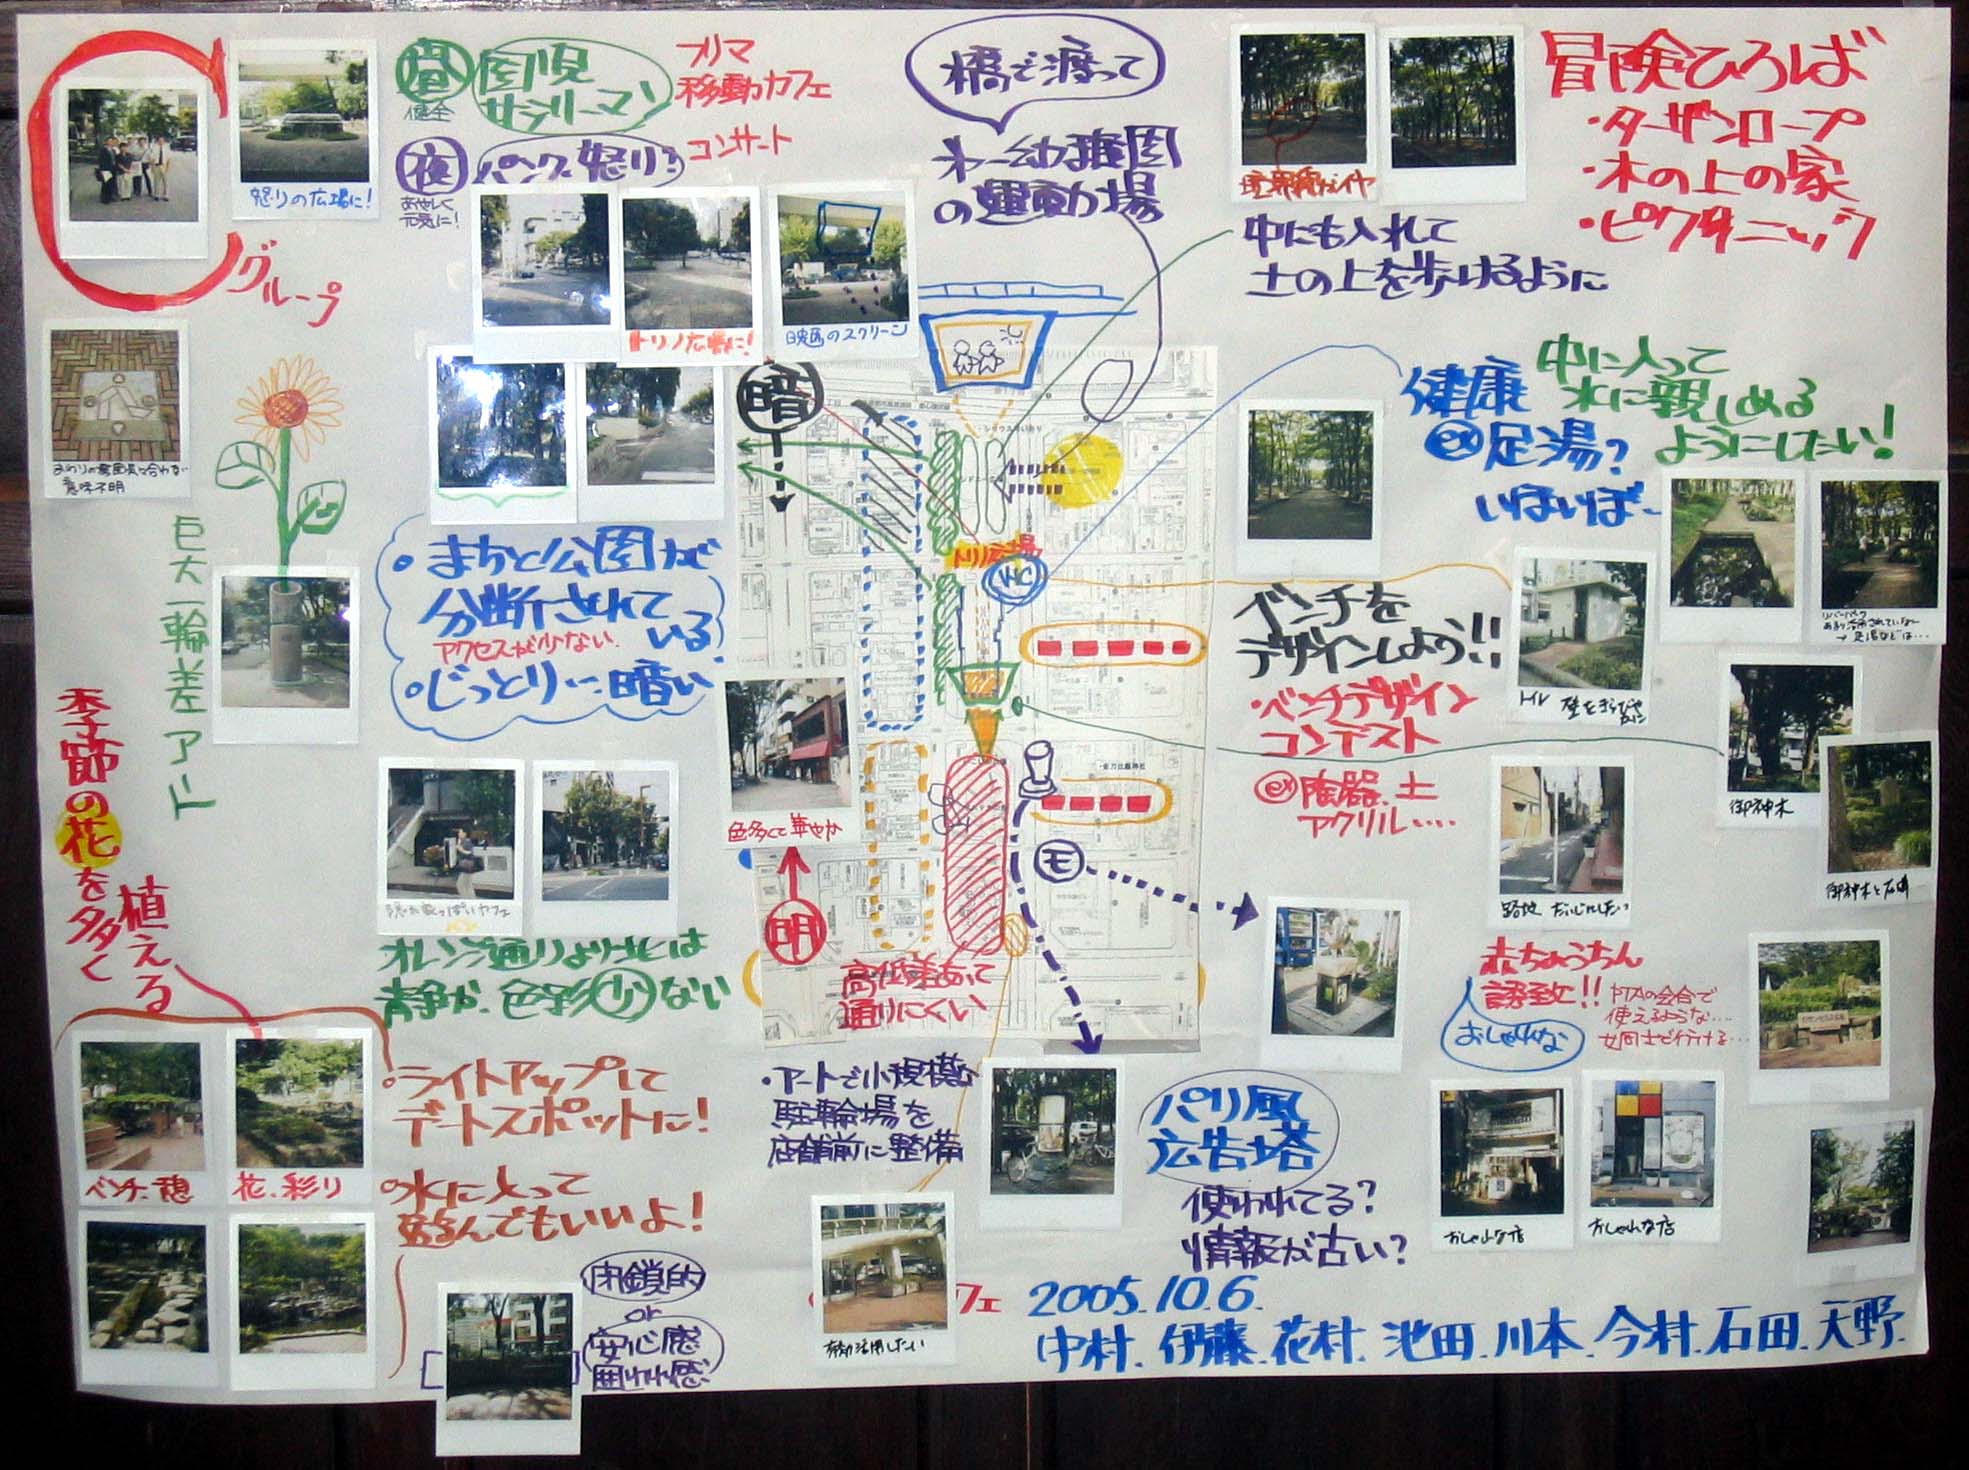 C
グループ
怒りの広場に!
昼
健全
園児
サラリーマン
夜
あやしく
元気に!
パンク 怒り?
フリマ
移動カフェ
コンサート
トリノ広場に!
映画のスクリーン
橋で渡って
第一幼稚園
の運動場
境界線がイヤ
中にも入れて
土の上を歩けるように
冒険ひろば
・ターザンロープ
・木の上の家
・ピクニック
まわりの雰囲気に合わない
意味不明
巨大一輪差アート
季節の花を多く
植える
暗
・まちと公園が
分断されて
いる
アクセスが少ない
・じっとり…暗い
健康
ex 足湯?
いぼいぼ
中に入って
水に親しめる
ようにしたい!
トリノ広場
WC
ベンチを
デザインしよう!!
・ベンチデザイン
コンテスト
ex 陶器、土
アクリル……
トイレ
御神木
御神木と石碑
色多くて華やか
明
モ
高低差あって
通りにくい
オレンジ通りよりは
静か、色彩少ない
路地
赤ちょうちん
誘致!!
PTAの会合で
使えるような…
女同士で行ける…
おしゃれな
・ライトアップして
デートスポットに!
・水に入って
遊んでもいいよ!
ベンチ、憩
花、彩り
・アートで小規模な
駐輪場を
店舗前に整備
パリ風
広告塔
使われてる?
情報が古い?
おしゃれな店
おしゃれな店
閉鎖的
or
安心感
囲われ感
有効活用したい
フェ
2005.10.6.
中村、伊藤、花村、池田、川本、今村、石田、天野